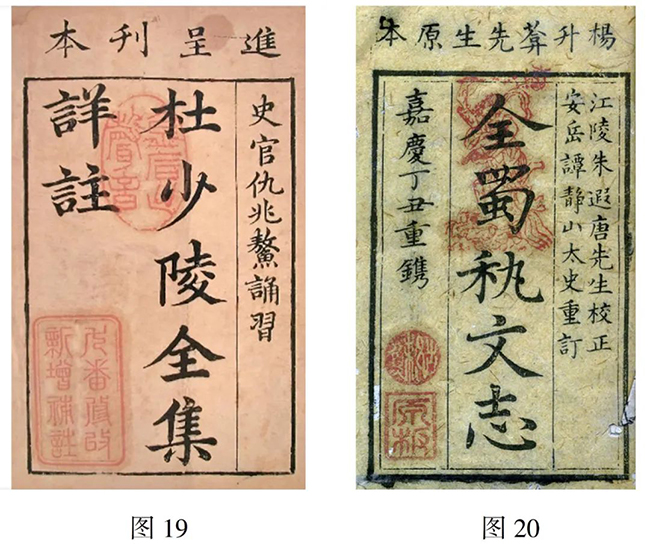 進呈刊本
史官仇兆鰲誦習
杜少陵全集
詳註
新增補註
图 19
楊升葊先生原本
江陵朱遐唐先生校正
安岳譚靜山太史重訂
全蜀秇文志
嘉慶丁丑重鐫
图 20